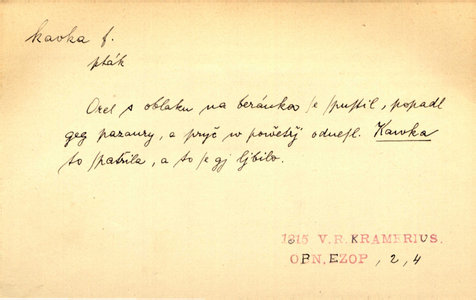 kavka f.
pták
Orel s oblaku na beránka se spustil, popadl
geg pazaury, a pryč w powětřj odnesl. Kawka
to spatřila, a to se gj ljbilo.
1815 V.R.KRAMERIUS.
OPN.EZOP, 2, 4